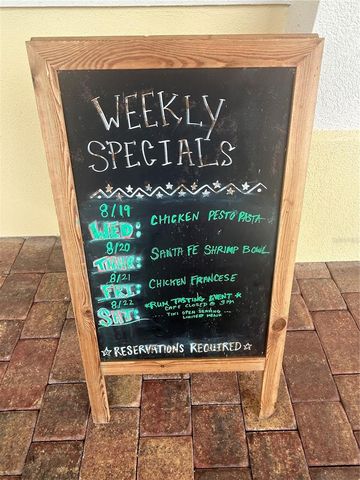 WEEKLY
SPECIALS
8/19
WED: CHICKEN PESTO PASTA
8/20
THUR: SANTA FE SHRIMP BOWL
8/21
FRI: CHICKEN FRANCESE
8/22 *RUM TASTING EVENT*
SAT: CAFE CLOSED @ 3PM
TIKI OPEN SERVING
LIMITED MENU
☆ RESERVATIONS REQUIRED ☆